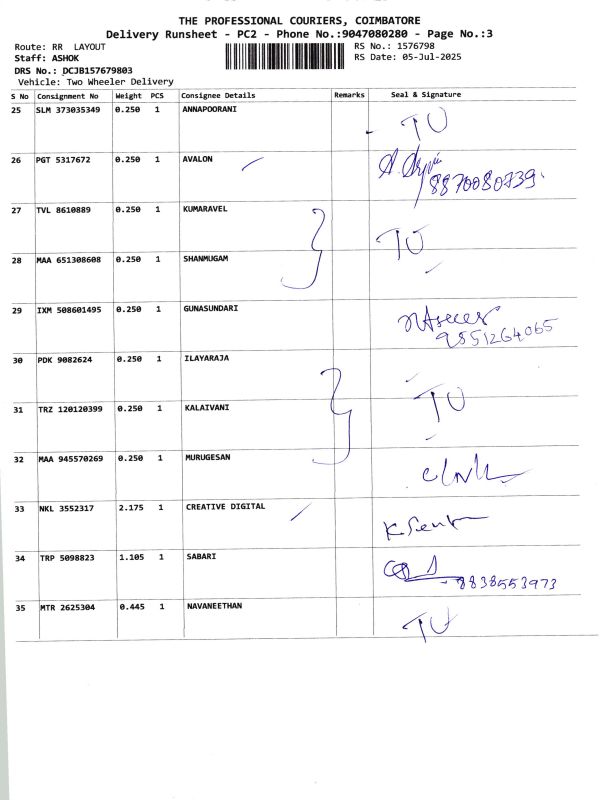 THE PROFESSIONAL COURIERS, COIMBATORE
Delivery Runsheet - PC2 - Phone No.:9047080280 - Page No.:3
Route: RR LAYOUT
RS No.: 1576798
Staff: ASHOK
RS Date: 05-Jul-2025
DRS No.: DCJB157679803
Vehicle: Two Wheeler Delivery
S No Consignment No Weight PCS Consignee Details Remarks Seal & Signature
25 SLM 373035349 0.250 1 ANNAPOORANI
TU
26 PGT 5317672 0.250 1 AVALON
8870080739
27 TVL 8610889 0.250 1 KUMARAVEL
TU
28 MAA 651308608 0.250 1 SHANMUGAM
29 IXM 508601495 0.250 1 GUNASUNDARI
9551264065
30 PDK 9082624 0.250 1 ILAYARAJA
TU
31 TRZ 120120399 0.250 1 KALAIVANI
32 MAA 945570269 0.250 1 MURUGESAN
33 NKL 3552317 2.175 1 CREATIVE DIGITAL
34 TRP 5098823 1.105 1 SABARI
8838553973
35 MTR 2625304 0.445 1 NAVANEETHAN
TU